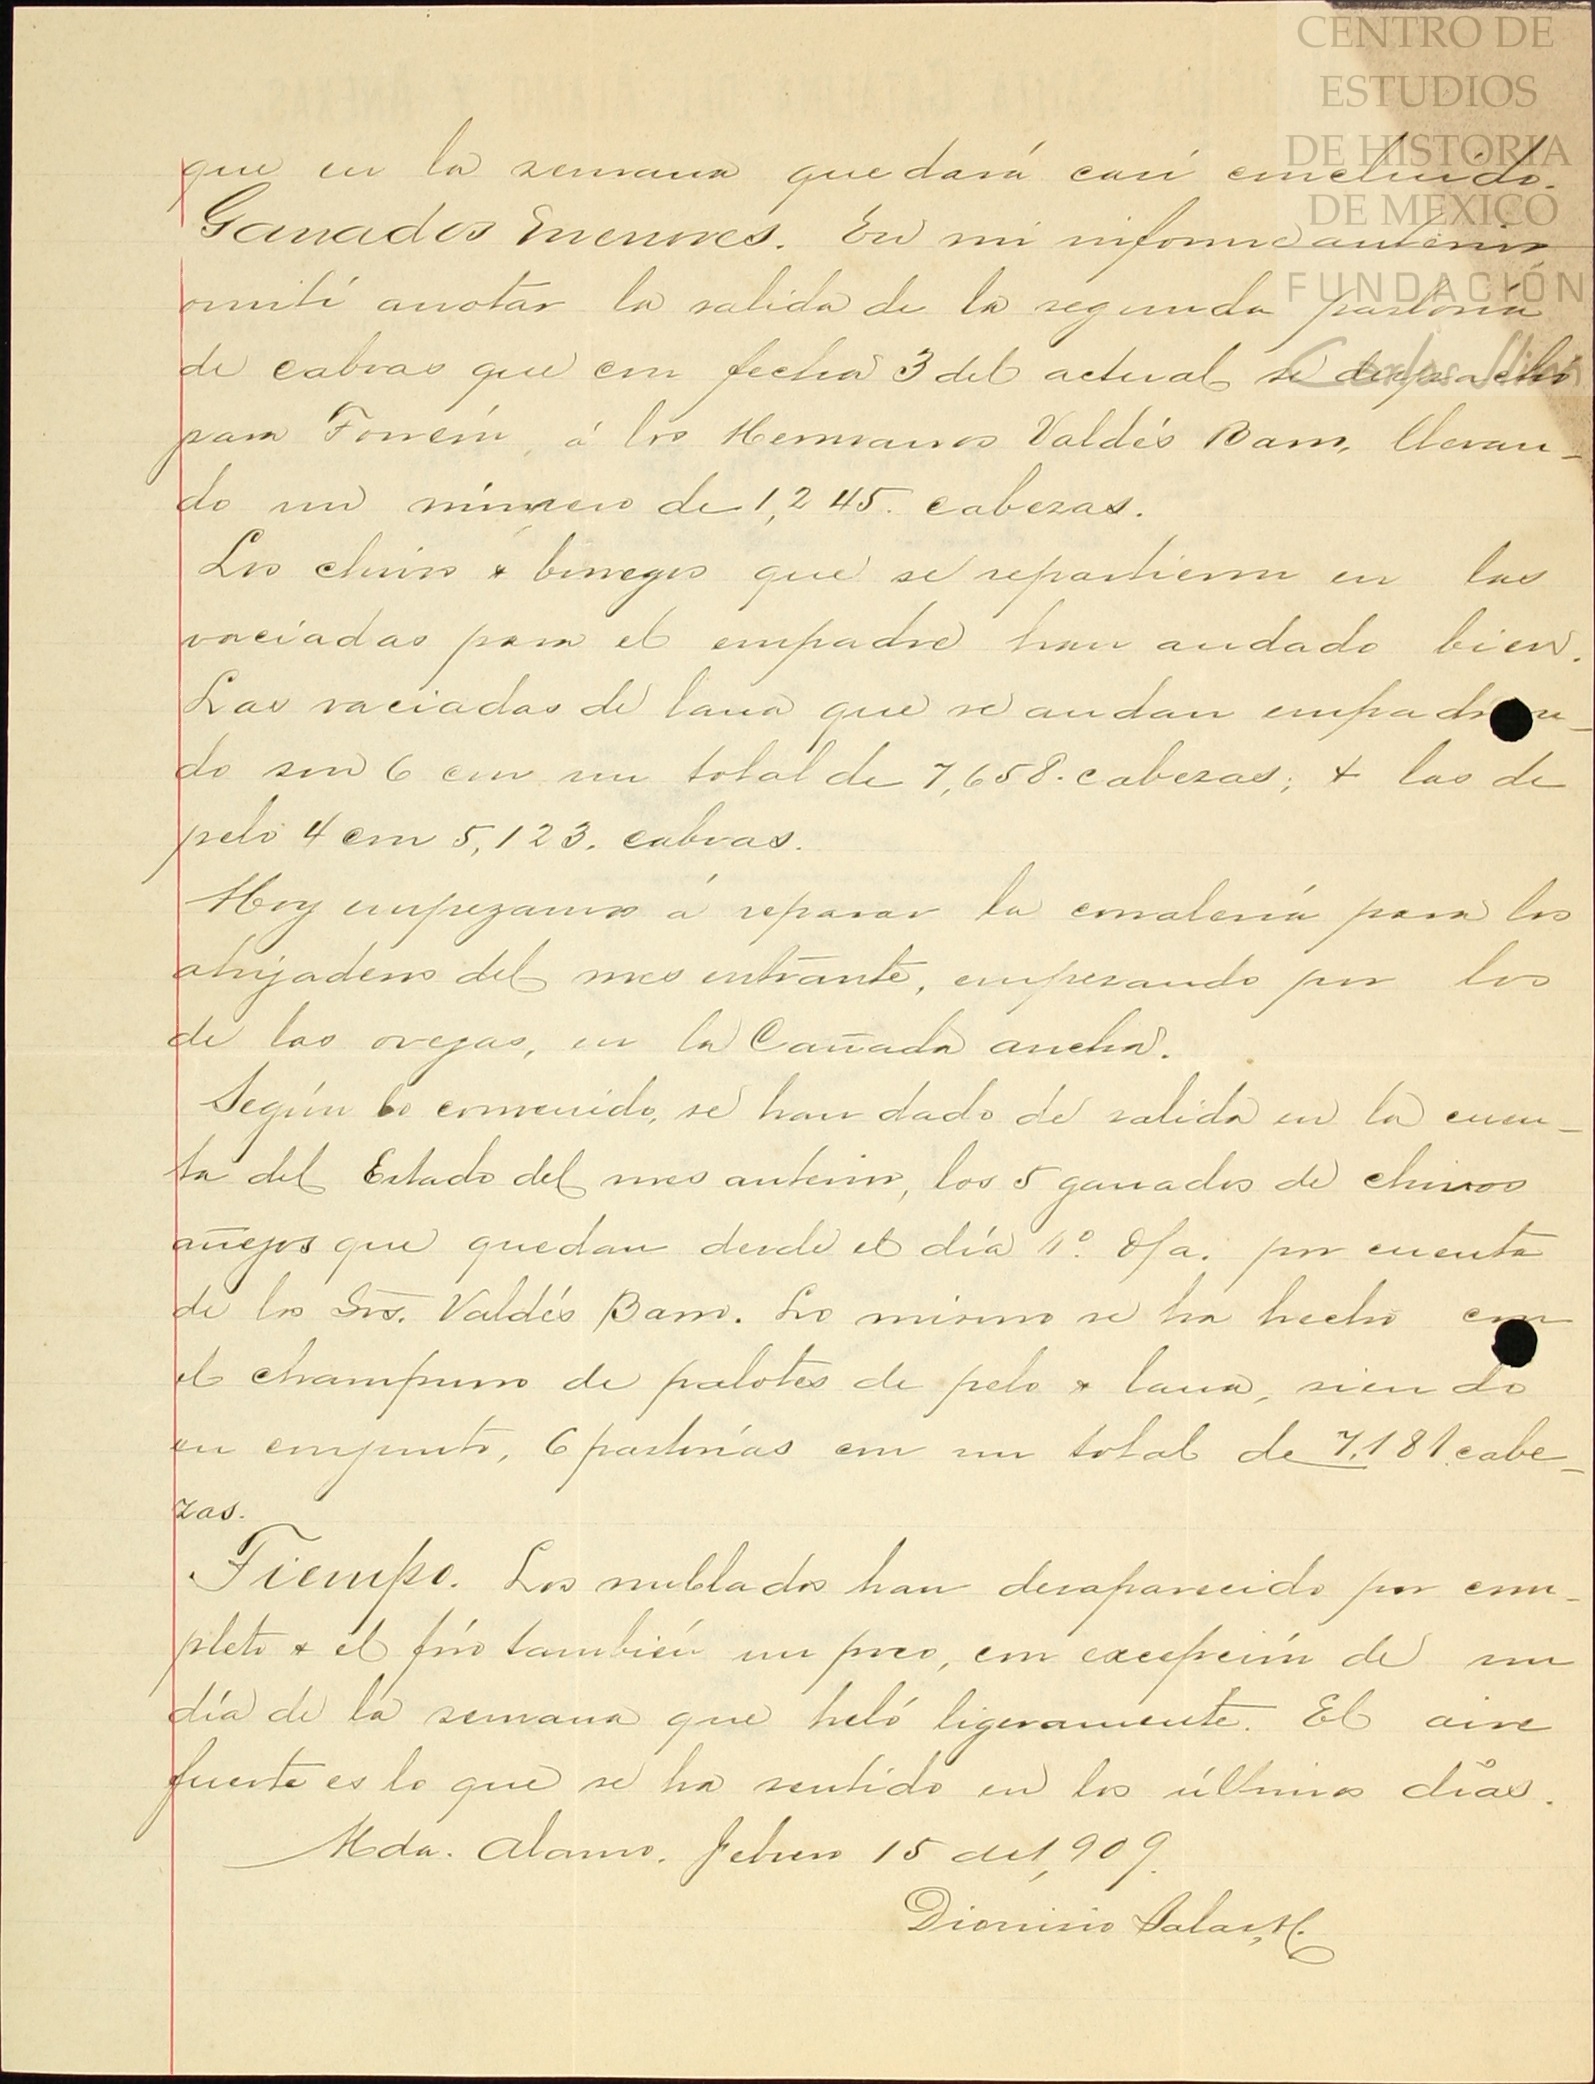 CENTRO DE
ESTUDIOS
DE HISTORIA
DE MEXICO
FUNDACIÓN
Carlos Slim
que en la semana quedará casi concluido.
Ganados menores. En mi informe anterior
omití anotar la salida de la segunda pastoría
de cabras que con fecha 3 del actual se despachó
para Torreón, á los Hermanos Valdés Barro, llevan-
do un número de 1,245. cabezas.
Los chivos & borregos que se repartieron en las
vaciadas para el empadre han andado bien.
Las vaciadas de lana que se andan empadran-
do son 6 con un total de 7,658. cabezas; & las de
pelo 4 con 5,123. cabras.
Hoy empezamos á reparar la corralería para los
ahijaderos del mes entrante, empezando por los
de las ovejas, en la Cañada ancha.
Según lo convenido, se han dado de salida en la cuen-
ta del Estado del mes anterior, los 5 ganados de chivos
añejos que quedan desde el día 1º. d/a. por cuenta
de los Srs. Valdés Barro. Lo mismo se ha hecho con
el champurro de palotes de pelo & lana, siendo
en conjunto, 6 pastorías con un total de 7,181 cabe-
zas.
Tiempo. Los nublados han desaparecido por com-
pleto & el frío también un poco, con excepción de un
día de la semana que heló ligeramente. El aire
fuerte es lo que se ha sentido en los últimos días.
Hda. Alamo. Febrero 15 de 1,909.
Dionisio Salas, H.